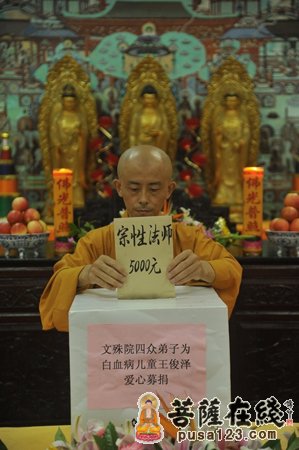 佛光普照
佛光普照
宗性法师
5000元
文殊院四众弟子为
白血病儿童王俊泽
爱心募捐
菩薩在线
pusa123.com